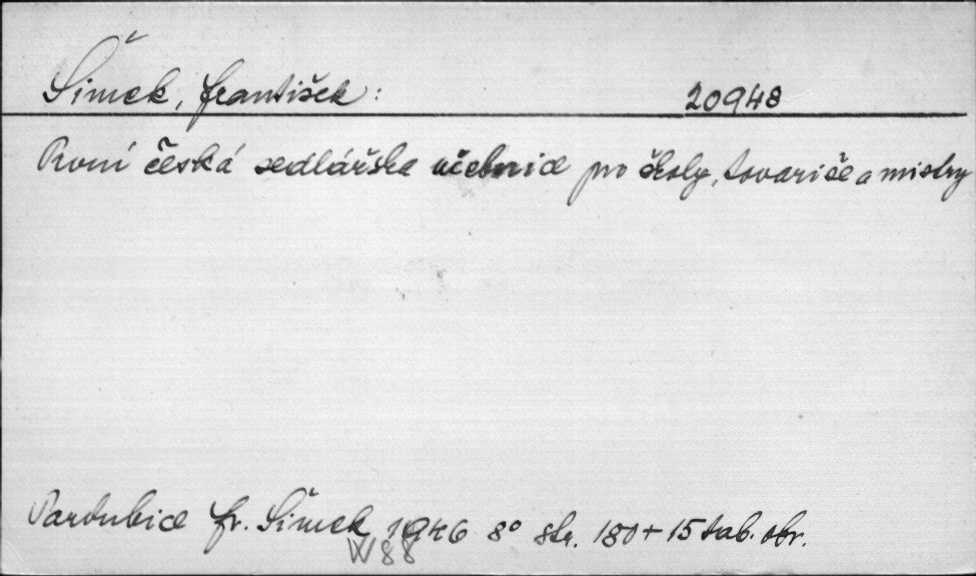 Šimek, František: 20948
První česká sedlářska učebnice pro školy, tovariše a mistry
Pardubice Fr. Šimek 1946 8° str. 180 + 15 tab. obr.
W 88